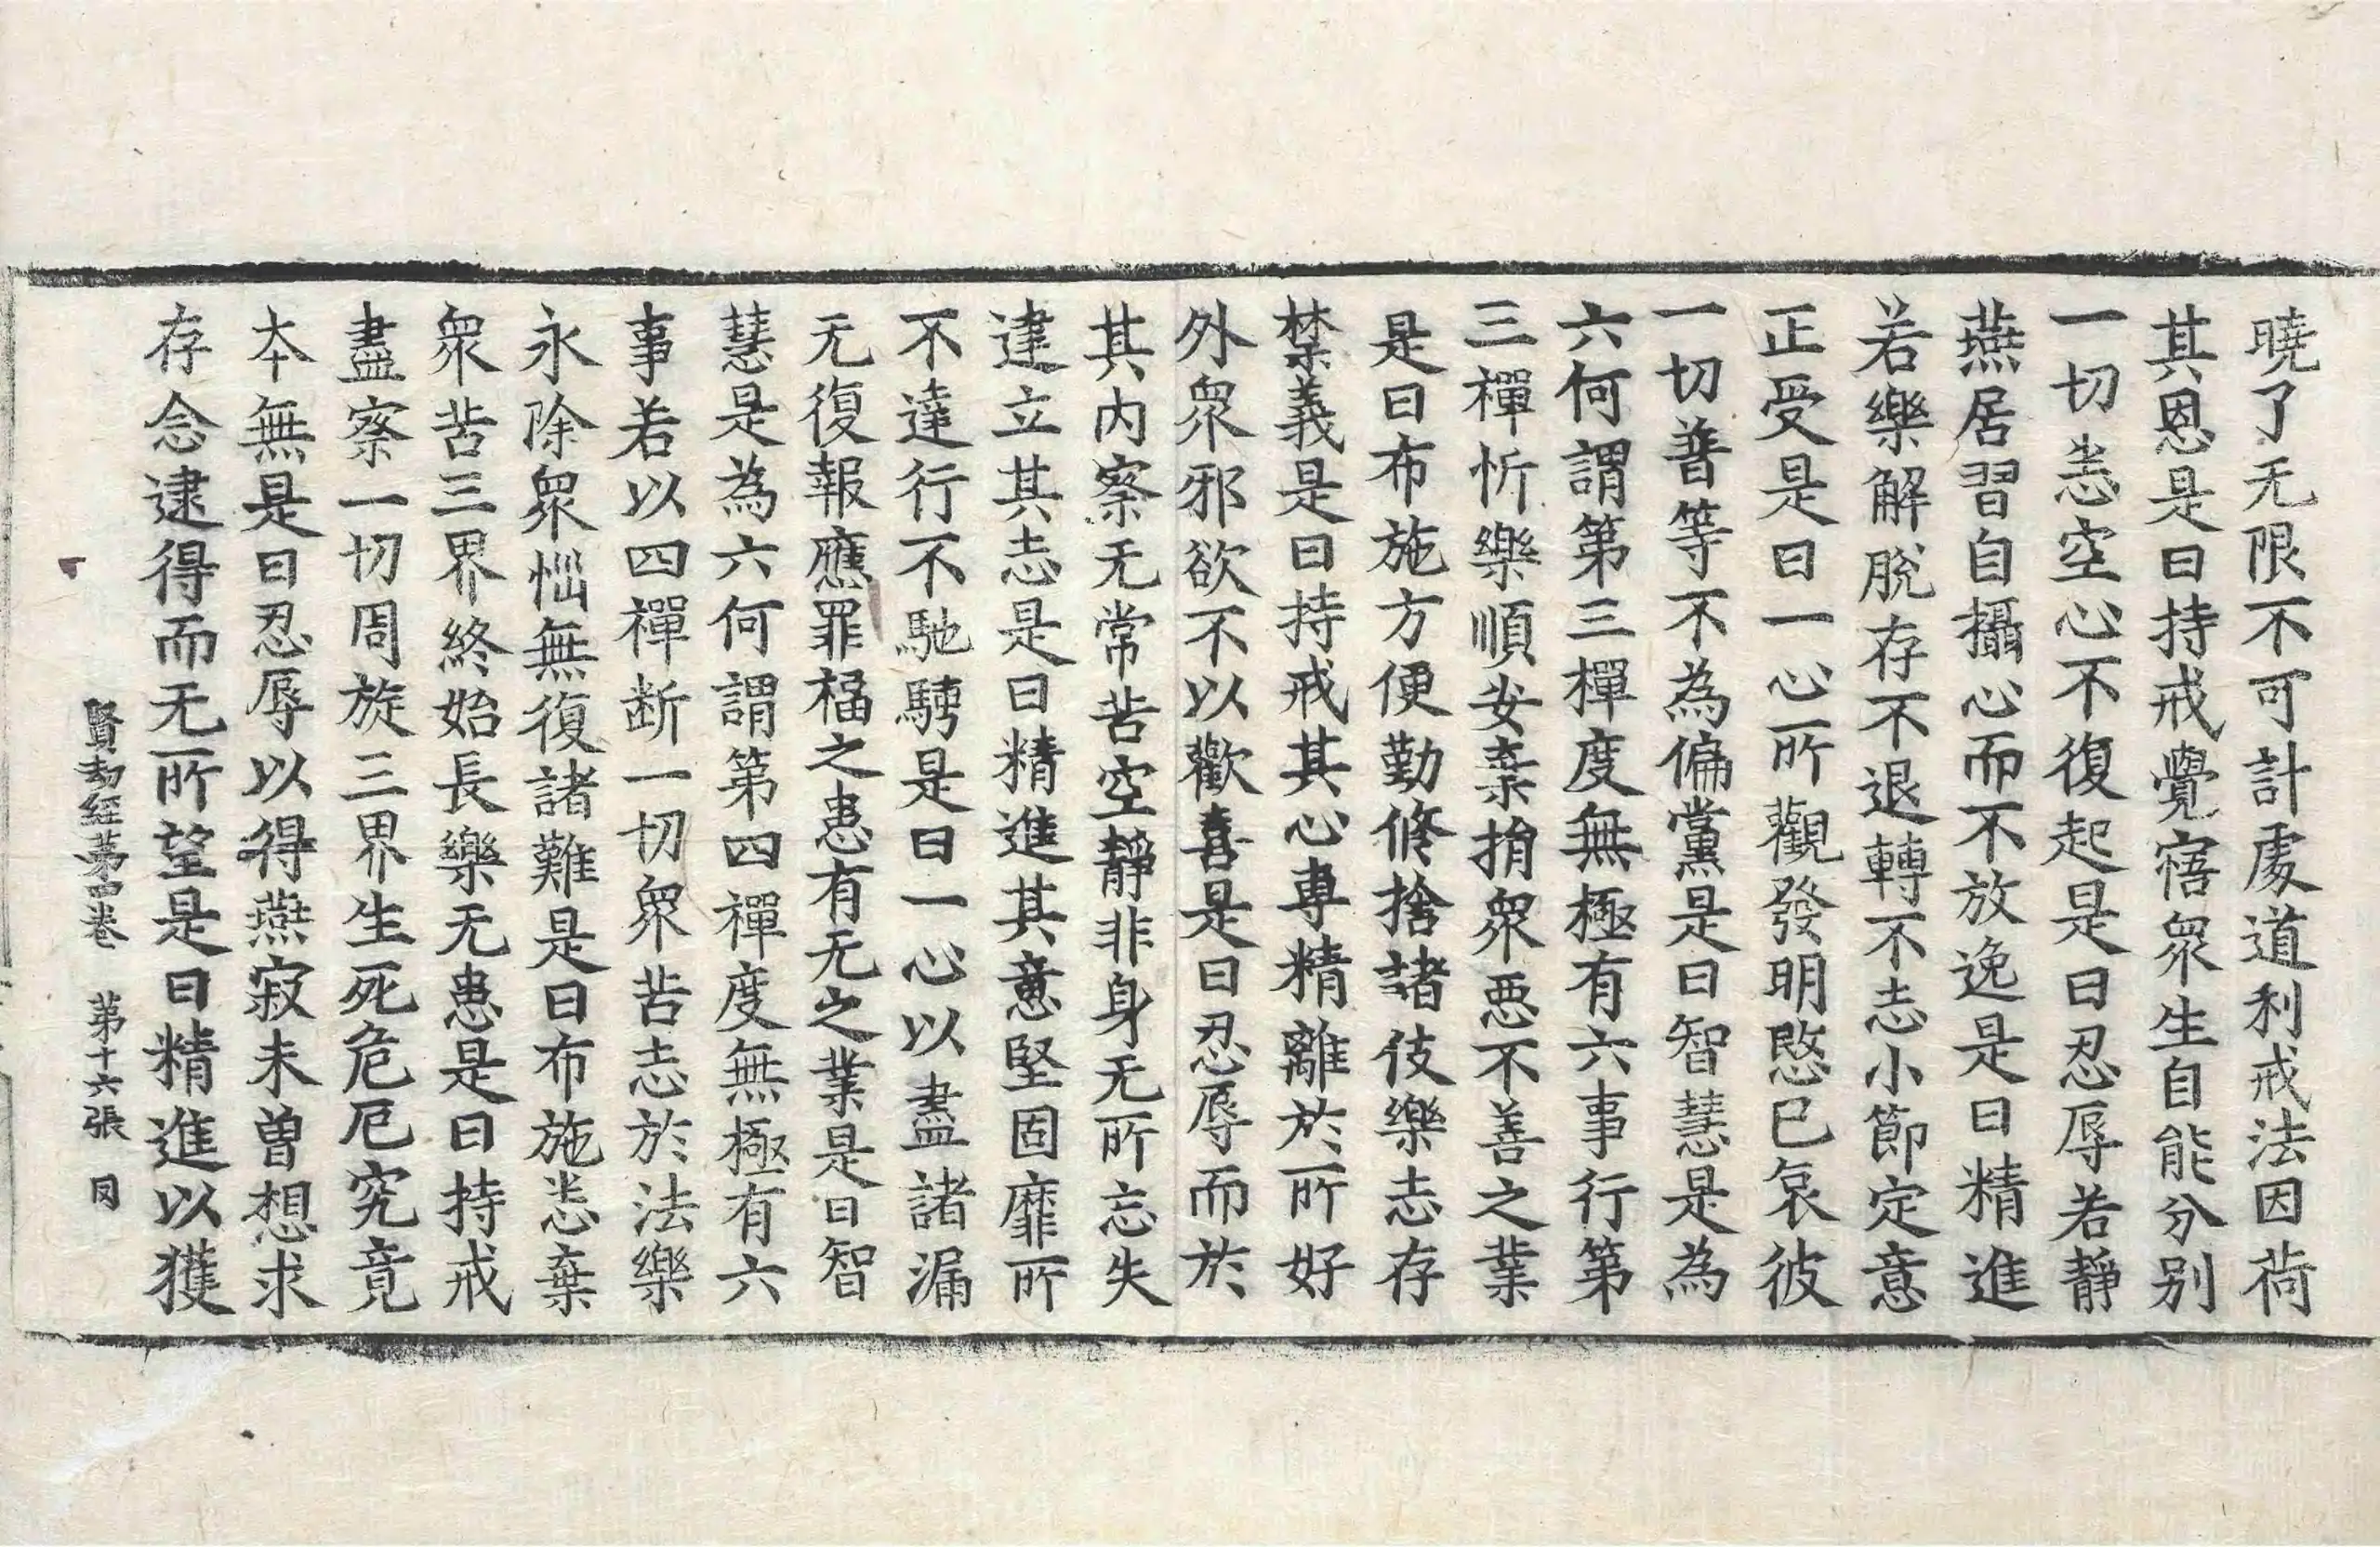 曉了无限不可計處道利戒法因荷
其恩是曰持戒覺寤衆生自能分别
一切恙空心不復起是曰忍辱若靜
燕居習自攝心而不放逸是曰精進
若樂解脫存不退轉不志小節定意
正受是曰一心所觀發明愍已哀彼
一切普等不為偏黨是曰智慧是為
六何謂第三禪度無極有六事行第
三禪忻樂順安棄捐衆惡不善之業
是曰布施方便勤修捨諸伎樂志存
禁義是曰持戒其心專精離於所好
外衆邪欲不以歡喜是曰忍辱而於
其內察无常苦空靜非身无所忘失
建立其志是曰精進其意堅固靡所
不達行不馳騁是曰一心以盡諸漏
无復報應罪福之患有无之業是曰智
慧是為六何謂第四禪度無極有六
事若以四禪断一切衆苦志於法樂
永除衆惱無復諸難是曰布施恙棄
衆苦三界終始長樂无患是曰持戒
盡察一切周旋三界生死危厄究竟
本無是曰忍辱以得燕寂未曾想求
存念逮得而无所望是曰精進以獲
賢劫經第四卷 第十六張 同